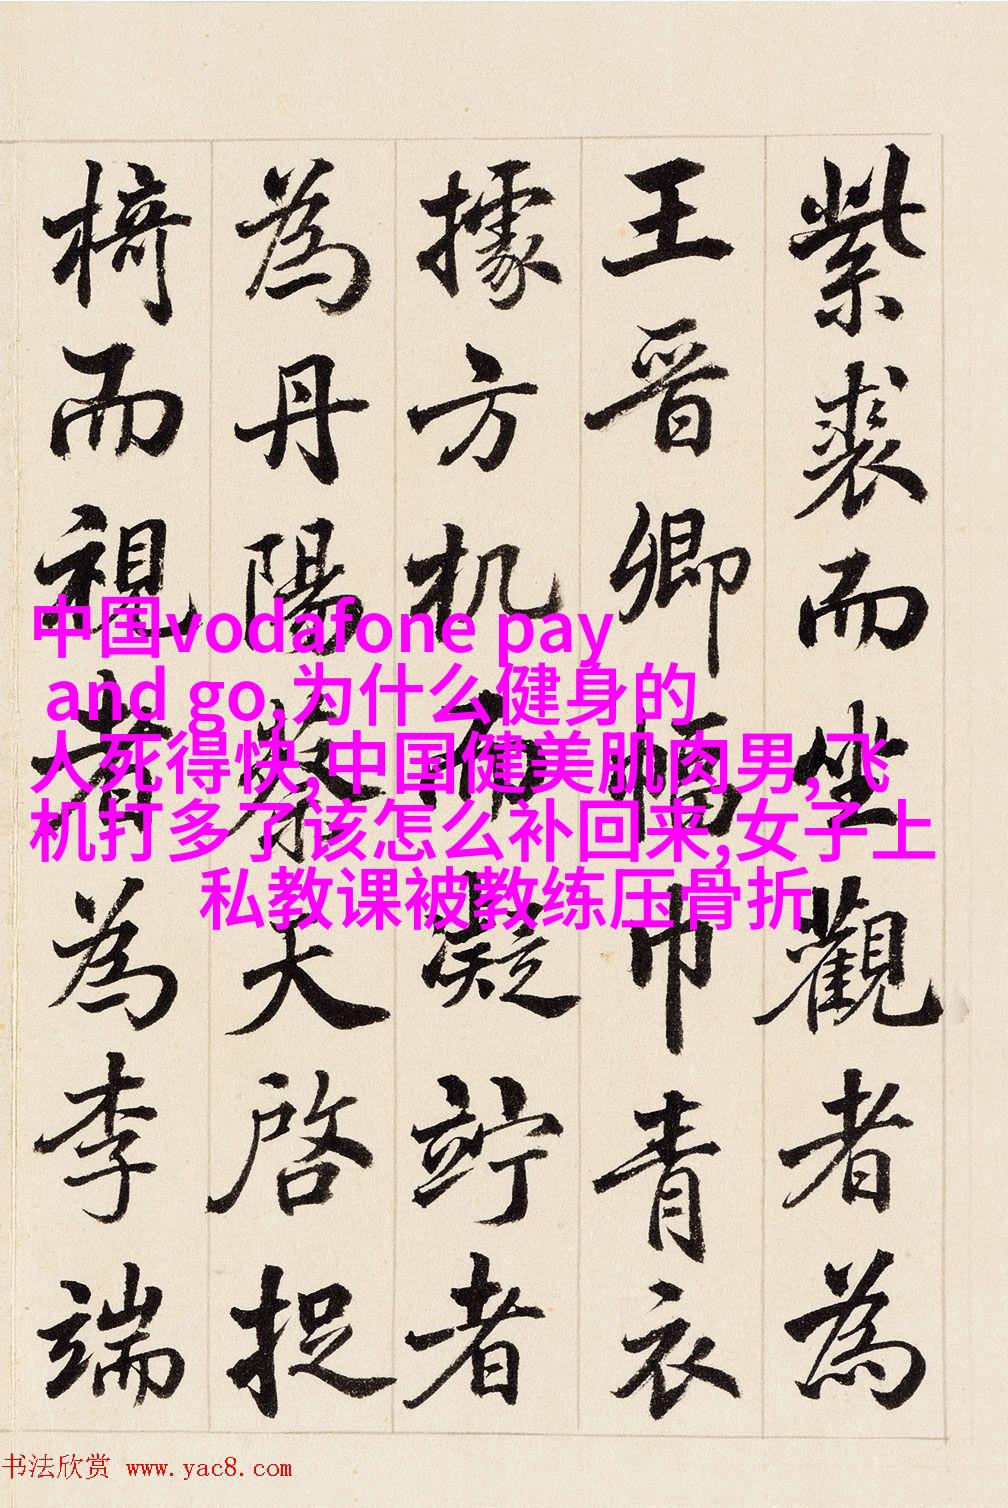 紫裘而坐觀者為
王晋卿幅巾青衣
據方机而凝竚者
為丹陽蔡天啓捉
椅而視者為李端
中国vodafone pay
and go,为什么健身的
人死得快,中国健美肌肉男,飞
机打多了该怎么补回来,女子上
私教课被教练压骨折
书法欣赏 www.yac8.com